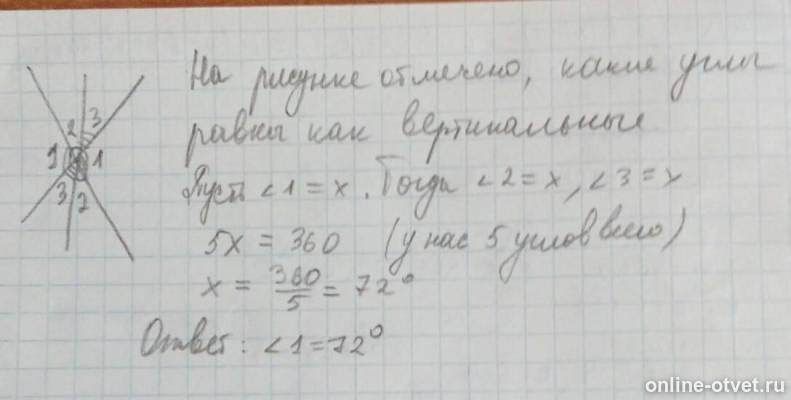 На рисунке отмечено, какие углы
равны как вертикальные
Пусть ∠1 = x. Тогда ∠2 = x, ∠3 = x
5x = 360 (у нас 5 углов всего)
x = 360/5 = 72°
Ответ: ∠1 = 72°
2 3
1 1
3 2
online-otvet.ru